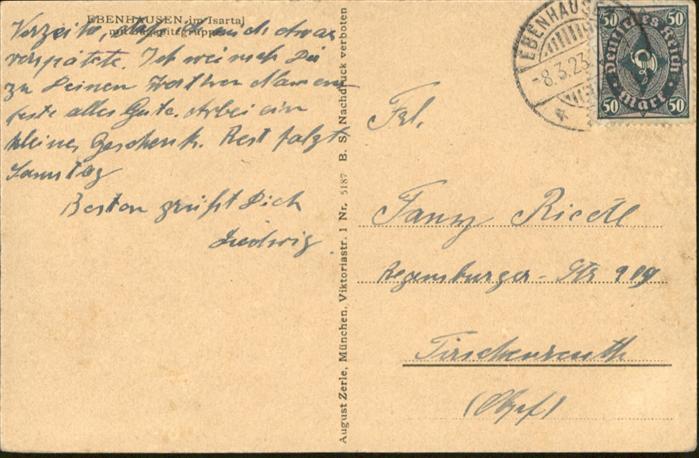 EBENHAUSEN im Isartal
mit Zugspitzgruppe
Verzeihe, daß ich mich etwas
verspätete. Ich
zu Deinem
feste alles Gute. Anbei ein
kleines Geschenk. Rest folgt
Samstag
Besten grüßt Dich
Ludwig.
August Zerle, München, Viktoriastr. 1 Nr. 5187 B. S. Nachdruck verboten
EBENHAUSEN
-8.3.23
50 50
Deutsches Reich
Mark
50 50
Frl.
Fanny Riedl
Regensburger-Str
Tirschenreuth
(Opf)